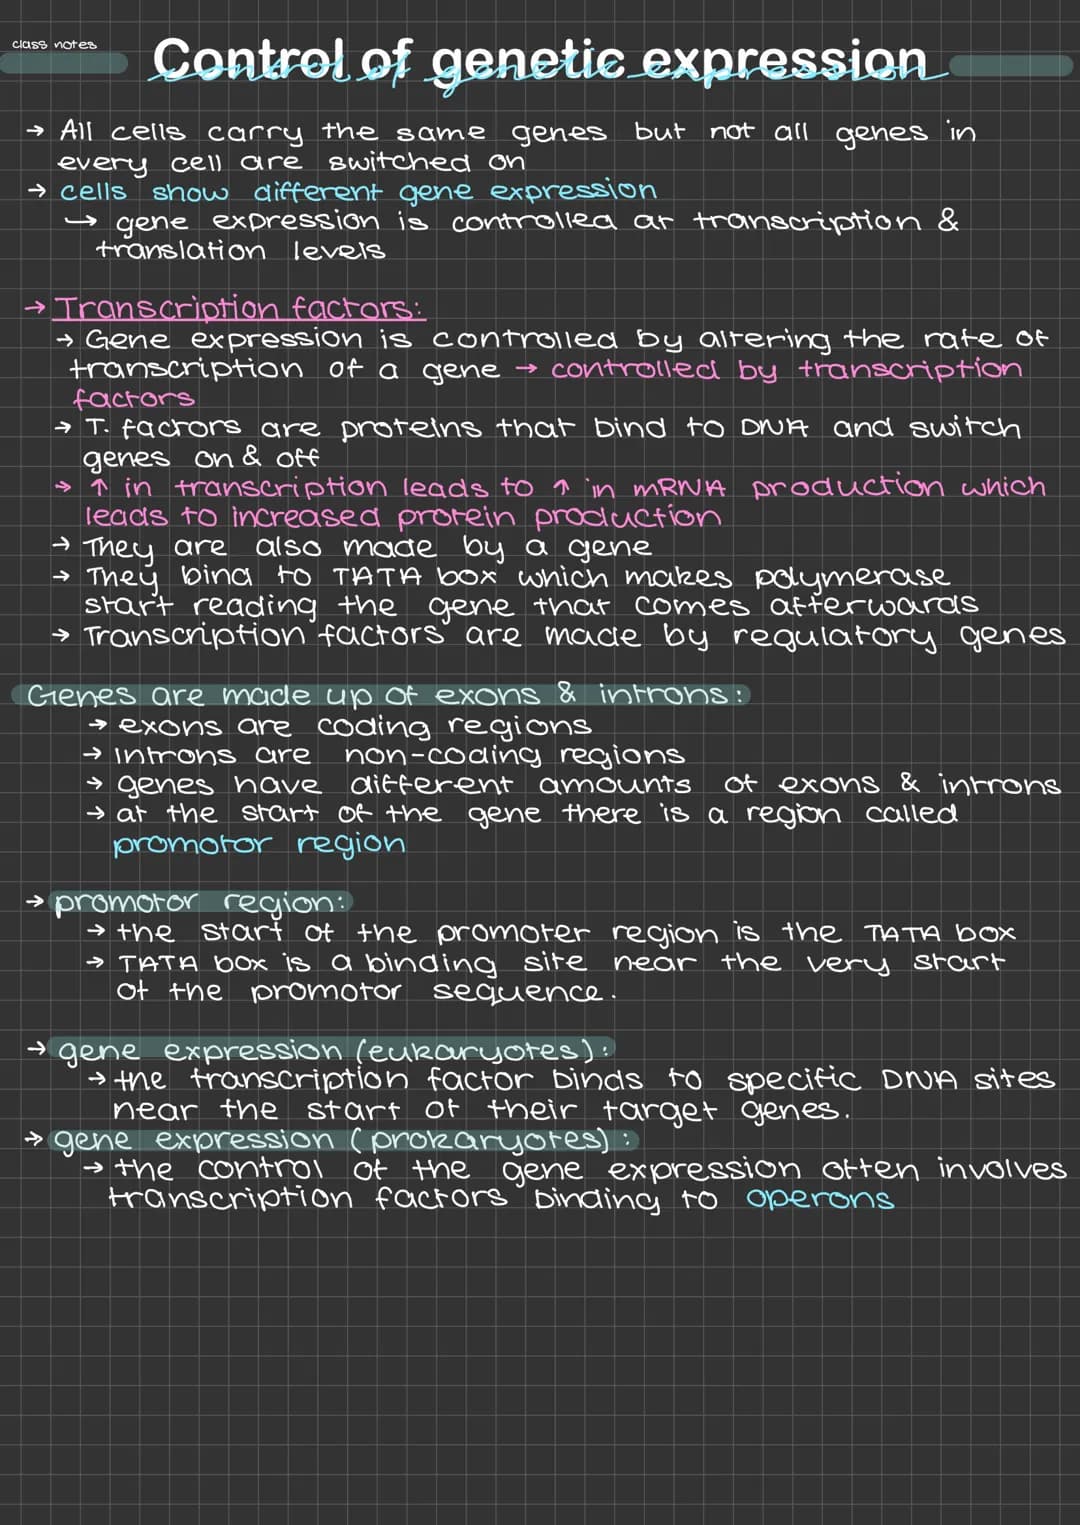 class notes
Control of genetic expression
→ All cells carry the same genes but not all genes in
every cell are switched on
→ cells show different gene expression
↳ gene expression is controlled at transcription &
translation levels
→ Transcription factors:
→ Gene expression is controlled by altering the rate of
transcription of a gene → controlled by transcription
factors
→ T. factors are proteins that bind to DNA and switch
genes on & off
→ ↑ in transcription leads to ↑ in mRNA production which
leads to increased protein production
→ They are also made by a gene
→ They bind to TATA box which makes polymerase
start reading the gene that comes afterwards
→ Transcription factors are made by regulatory genes
Genes are made up of exons & introns:
→ exons are coding regions
→ introns are non-coding regions
→ genes have different amounts of exons & introns
→ at the start of the gene there is a region called
promotor region
→ promotor region:
→ the start of the promoter region is the TATA box
→ TATA box is a binding site near the very start
of the promotor sequence.
→ gene expression (eukaryotes):
→ the transcription factor binds to specific DNA sites
near the start of their target genes.
→ gene expression (prokaryotes):
→ the control of the gene expression often involves
transcription factors binding to operons